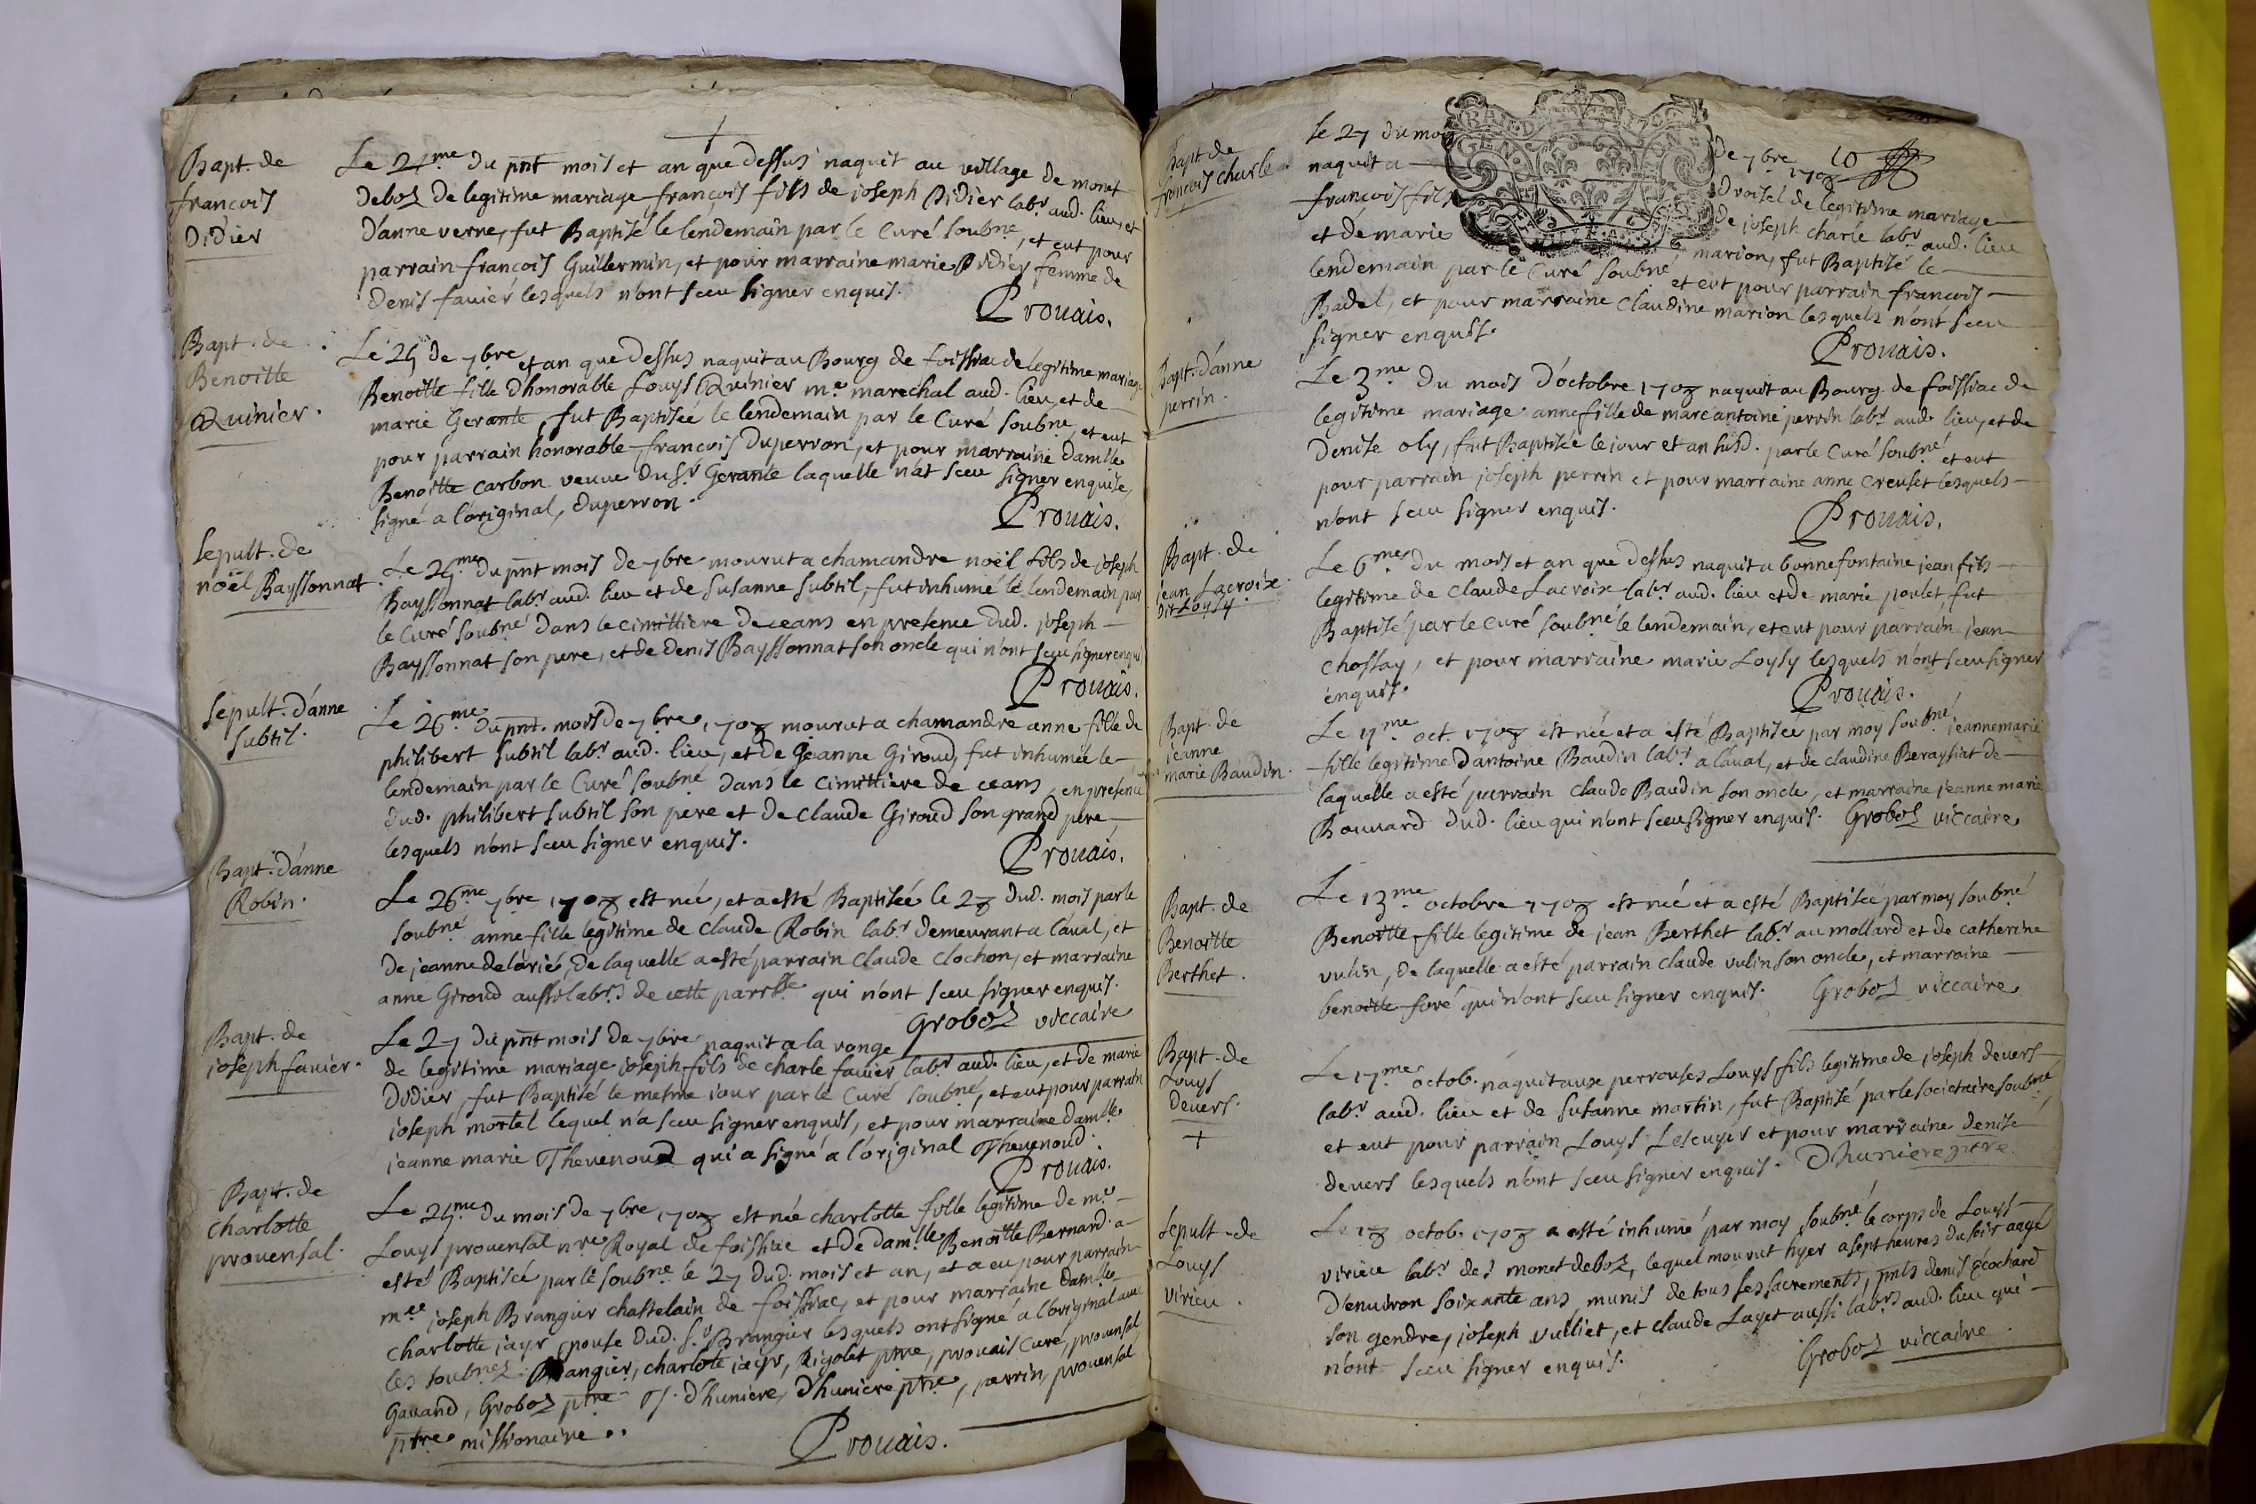 Bapt. de
francois
Didier
Le 21me du pnt mois et an que dessus naquit au village de monet
deboz de legitime mariage francois fils de joseph Didier labr aud. lieu, et
d'anne verne, fut Baptisé le lendemain par le Curé soubné, et eut pour
parrain francois Guillermin, et pour marraine marie Didier femme de
Denis favier lesquels n'ont sceu signer enquis.
Prouais.
Bapt. de
Benoitte
Quinier.
Le 25 de 7bre et an que dessus naquit au Bourg de foissiac de legitime mariage
Benoitte fille d'honorable Louys Quinier me marechal aud. lieu, et de
marie Gerante, fut Baptisée le lendemain par le Curé soubné, et eut
pour parrain honorable francois Duperron, et pour marraine damlle
Benoitte Carbon veuve du Sr Gerante laquelle n'at sceu signer enquise,
signé a l'original, duperron.
Prouais.
Sepult. de
noël Bayssonnat.
Le 25me du pnt mois de 7bre mourut a chamandre noël fils de joseph
Bayssonnat labr aud. lieu et de Susanne subtil, fut inhumé le lendemain par
le Curé soubné dans le cimittiere de ceans en presence dud. joseph
Bayssonnat son pere, et de denis Bayssonnat son oncle qui n'ont sceu signer enquis
Prouais.
Sepult. d'anne
subtil.
Le 26me du pnt. mois de 7bre 1708 mourut a chamandre anne fille de
philibert subtil labr aud. lieu, et de Jeanne Giroud, fut inhumée le
lendemain par le Curé soubné dans le cimittiere de ceans, en presence
dud. philibert subtil son pere et de Claude Giroud son grand pere
lesquels n'ont sceu signer enquis.
Prouais.
Bapt. d'anne
Robin.
Le 26me 7bre 1708 est née, et a esté Baptisée le 28 dud. mois par le
soubné anne fille legitime de Claude Robin labr demeurant a laual, et
de jeanne delorie, de laquelle a esté parrain Claude Clochon, et marraine
anne Giroud aussi labrs de cette parrsse qui n'ont sceu signer enquis.
Groboz viccaire
Bapt. de
joseph favier.
Le 27 du pnt mois de 7bre naquit a la ronge
de legitime mariage joseph fils de charle favier labr aud. lieu, et de marie
Didier, fut Baptisé le mesme jour par le Curé soubné, et eut pour parrain
joseph mortel lequel n'a sceu signer enquis, et pour marraine damlle
jeanne marie Thevenoud qui a signé a l'original Thevenoud.
Prouais.
Bapt. de
Charlotte
prouensal.
Le 25me du mois de 7bre 1708 est née charlotte fille legitime de me
Louys prouensal nre Royal de foissiac et de damlle Benoitte Bernard a
esté Baptisée par le soubné le 27 dud. mois et an, et a eu pour parrain
me joseph Brangier chastelain de foissiac, et pour marraine damlle
charlotte jayr epouse dud. Sr Brangier lesquels ont signé a l'original auec
les soubnez. Brangier, charlotte jayr, Rigolet ptre, prouais Curé, prouensal,
Gauand, Groboz ptre J. d'huniere, d'huniere ptre, perrin, prouensal
ptre missionaire.
Prouais.
Bapt de
francois charle
le 27 du mois
de 7bre 1708
10
naquit a
Droisel de legitime mariage
francois fils
de joseph charle labr aud. lieu
et de marie
marion, fut Baptisé le
lendemain par le Curé soubné et eut pour parrain francois
Badel, et pour marraine Claudine marion lesquels n'ont sceu
signer enquis.
Prouais.
Bapt. d'anne
perrin.
Le 3me du mois d'octobre 1708 naquit au Bourg de foissiac de
legitime mariage anne fille de marc antoine perrin labr aud. lieu, et de
Denise oly, fut Baptisée le jour et an susd. par le Curé soubné et eut
pour parrain joseph perrin et pour marraine anne Creuset lesquels
n'ont sceu signer enquis.
Prouais.
Bapt. de
jean Lacroix
dit Loysy.
Le 6me du mois et an que dessus naquit a bonnefontaine jean fils
legitime de Claude Lacroix labr aud. lieu et de marie poulet, fut
Baptisé par le Curé soubné le lendemain, et eut pour parrain jean
Chossay, et pour marraine marie Loysy lesquels n'ont sceu signer
enquis.
Prouais.
Bapt. de
jeanne
marie Baudin.
Le 7me oct. 1708 est née et a esté Baptisée par moy soubné jeanne marie
fille legitime d'antoine Baudin labr a laual, et de claudine Berayssiat de
laquelle a esté parrain Claude Baudin son oncle, et marraine jeanne marie
Bouuard dud. lieu qui n'ont sceu signer enquis. Groboz viccaire
Bapt. de
Benoitte
Berthet.
Le 13me octobre 1708 est née et a esté Baptisée par moy soubné
Benoitte fille legitime de jean Berthet labr au mollard et de catherine
vulin, de laquelle a esté parrain claude vulin son oncle, et marraine
benoitte foré qui n'ont sceu signer enquis. Groboz viccaire
Bapt. de
Louys
deuers.
Le 17me octob. naquit aux perrouses Louys fils legitime de joseph deuers
labr aud. lieu et de Susanne martin, fut Baptisé par le societaire soubné
et eut pour parrain Louys Lescuyer et pour marraine denise
deuers lesquels n'ont sceu signer enquis. Dhuniere ptre.
Sepult. de
Louys
virieu.
Le 18 octob. 1708 a esté inhumé par moy soubné le corps de Louys
virieu labr des monet deboz, lequel mourut hyer a sept heures du soir aagé
d'enuiron soixante ans munis de tous ses sacrements, pnts denis Ecochard
son gendre, joseph vulliet, et claude Layet aussi labrs aud. lieu qui
n'ont sceu signer enquis.
Groboz viccaire